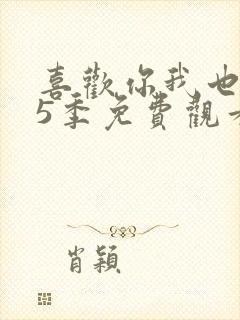 喜歡你我也
5季免費觀看
肖穎